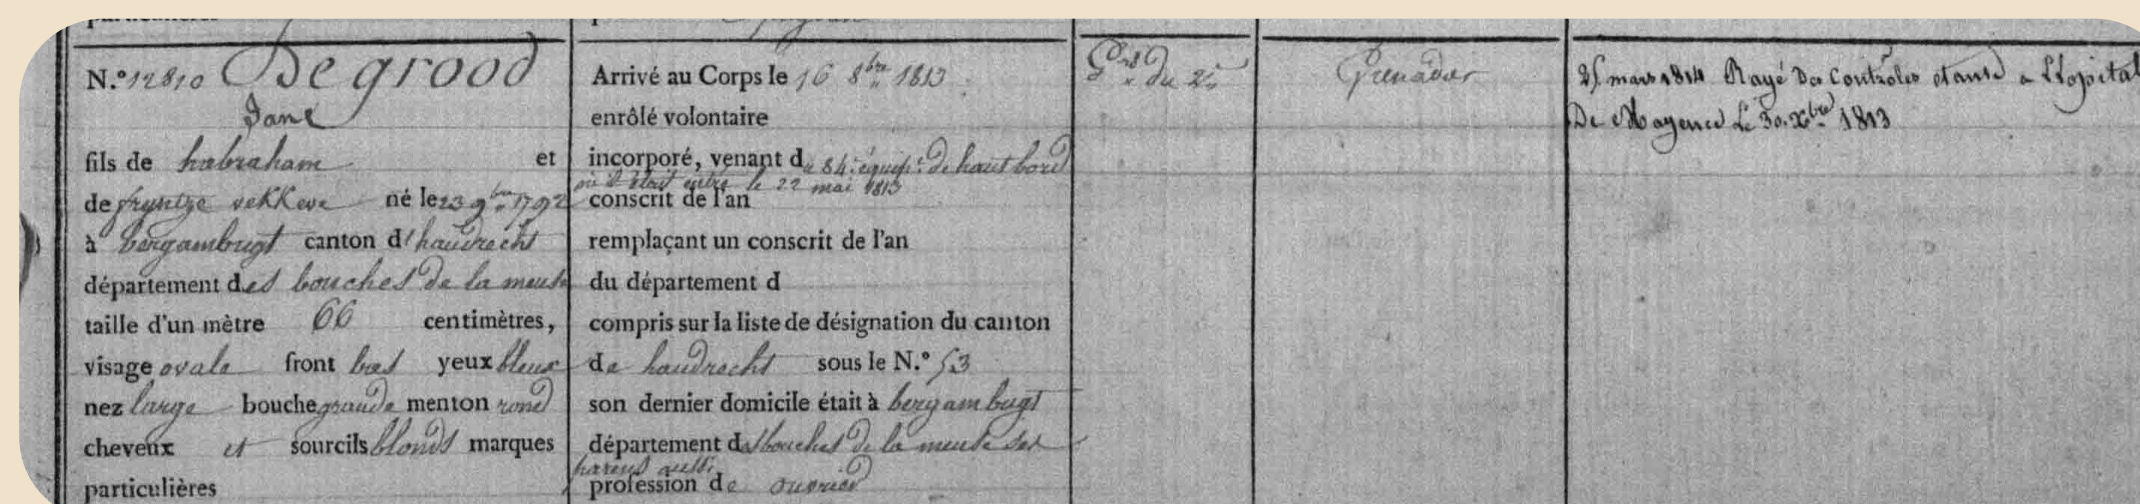 particulières
N.° 12810 Degrood
Jane
fils de habraham et
de fryntge vekkeve né le 23 9bre 1792
à bergambugt canton d'haudrecht
département des bouches de la meuse
taille d'un mètre 66 centimètres,
visage ovale front bas yeux bleus
nez large bouche grande menton rond
cheveux et sourcils blonds marques
particulières
Arrivé au Corps le 16 8bre 1813
enrôlé volontaire
incorporé, venant du 84e équip.e de haut bord
où il était entré le 22 mai 1813
conscrit de l'an
remplaçant un conscrit de l'an
du département d
compris sur la liste de désignation du canton
de haudrecht sous le N.° 53
son dernier domicile était à bergambugt
département des bouches de la meuse ses
parens aussi
profession de ouvrier
du 2e
Grenadier
25 mars 1814 Rayé des Contrôles étant à l'hopital
De Mayence Le 30. Xbre 1813